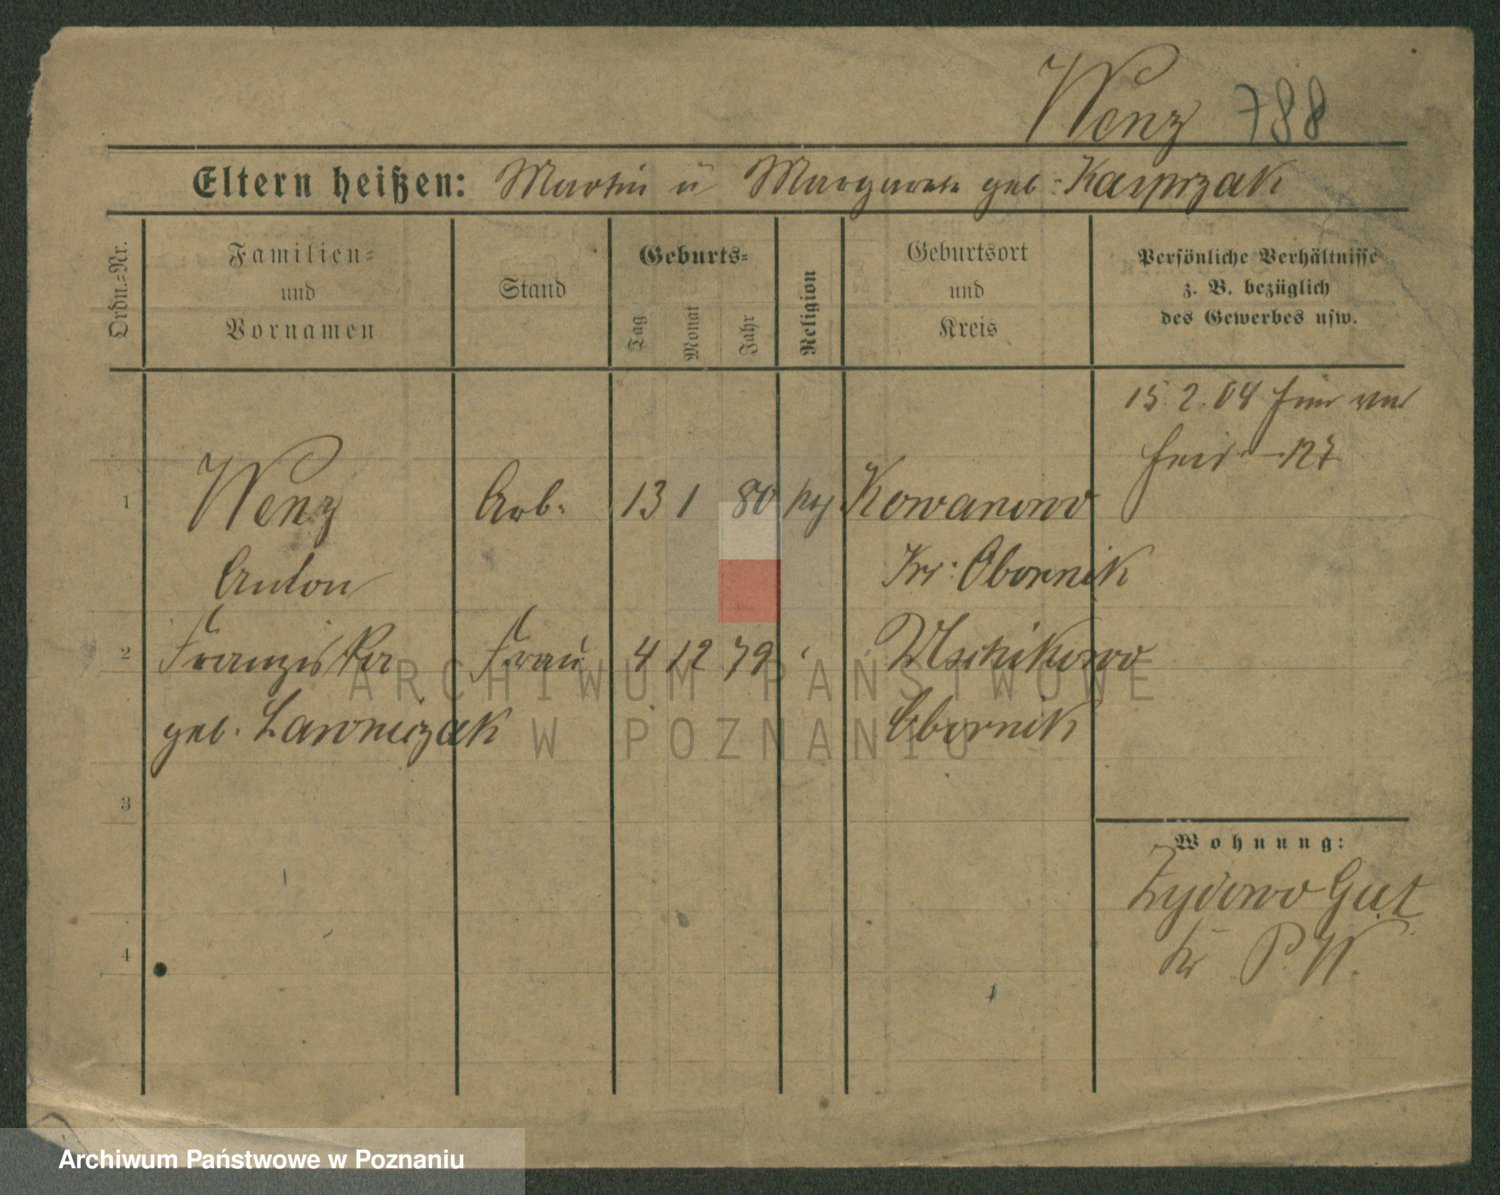 Wenz 788
Eltern heißen: Martin u Margarete geb. Kasprzak
Ordn.=Nr.
Familien=
und
Vornamen
Stand
Geburts=
Tag
Monat
Jahr
Religion
Geburtsort
und
Kreis
Persönliche Verhältnisse
z. B. bezüglich
des Gewerbes usw.
15. 2. 04 hier ver
heir.
1 Wenz Arb. 13 1 80 Kowanowo
Anton Kr: Obornik
2 Franziska Frau 4 12 79 Uschikowo
geb. Lawniczak Obornik
3
Wohnung:
Zydowo Gut
Kr P. W.
4
ARCHIWUM PAŃSTWOWE
W POZNANIU
Archiwum Państwowe w Poznaniu